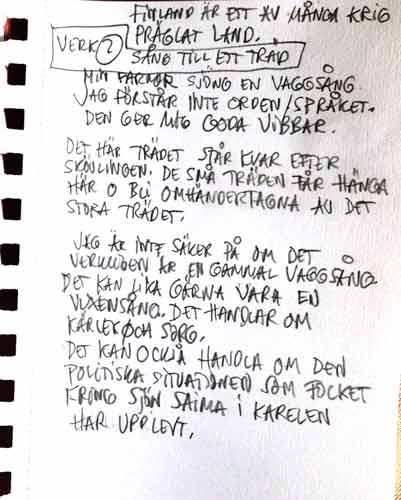 FINLAND ÄR ETT AV MÅNGA KRIG
PRÄGLAT LAND.
VERK 2
SÅNG TILL ETT TRÄD
MIN FARMOR SJÖNG EN VAGGSÅNG
JAG FÖRSTÅR INTE ORDEN/SPRÅKET.
DEN GER MIG GODA VIBBAR.
DET HÄR TRÄDET STÅR KVAR EFTER
SKÖVLINGEN. DE SMÅ TRÄDEN FÅR HÄNGA
HÄR O BLI OMHÄNDERTAGNA AV DET
STORA TRÄDET.
JAG ÄR INTE SÄKER PÅ OM DET
VERKLIGEN ÄR EN GAMMAL VAGGSÅNG.
DET KAN LIKA GÄRNA VARA EN
VUXENSÅNG. DET HANDLAR OM
KÄRLEK OCH SORG.
DET KAN OCKSÅ HANDLA OM DEN
POLITISKA SITUATIONEN SOM FOLKET
KRING SJÖN SAIMA I KARELEN
HAR UPPLEVT.